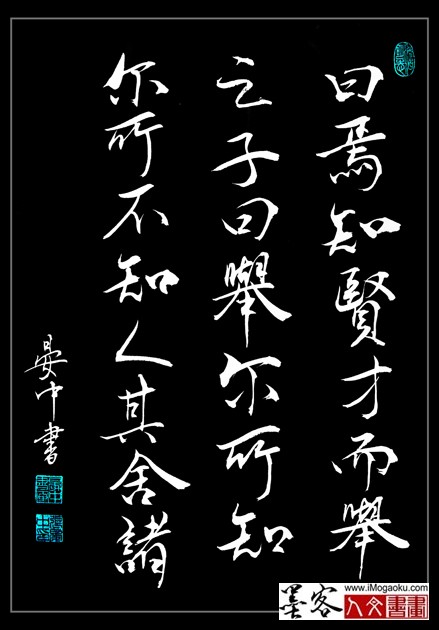 曰焉知賢才而舉
之子曰舉尔所知
尔所不知人其舍諸
晏中書
www.iMogaoku.com
墨客
人文書畫